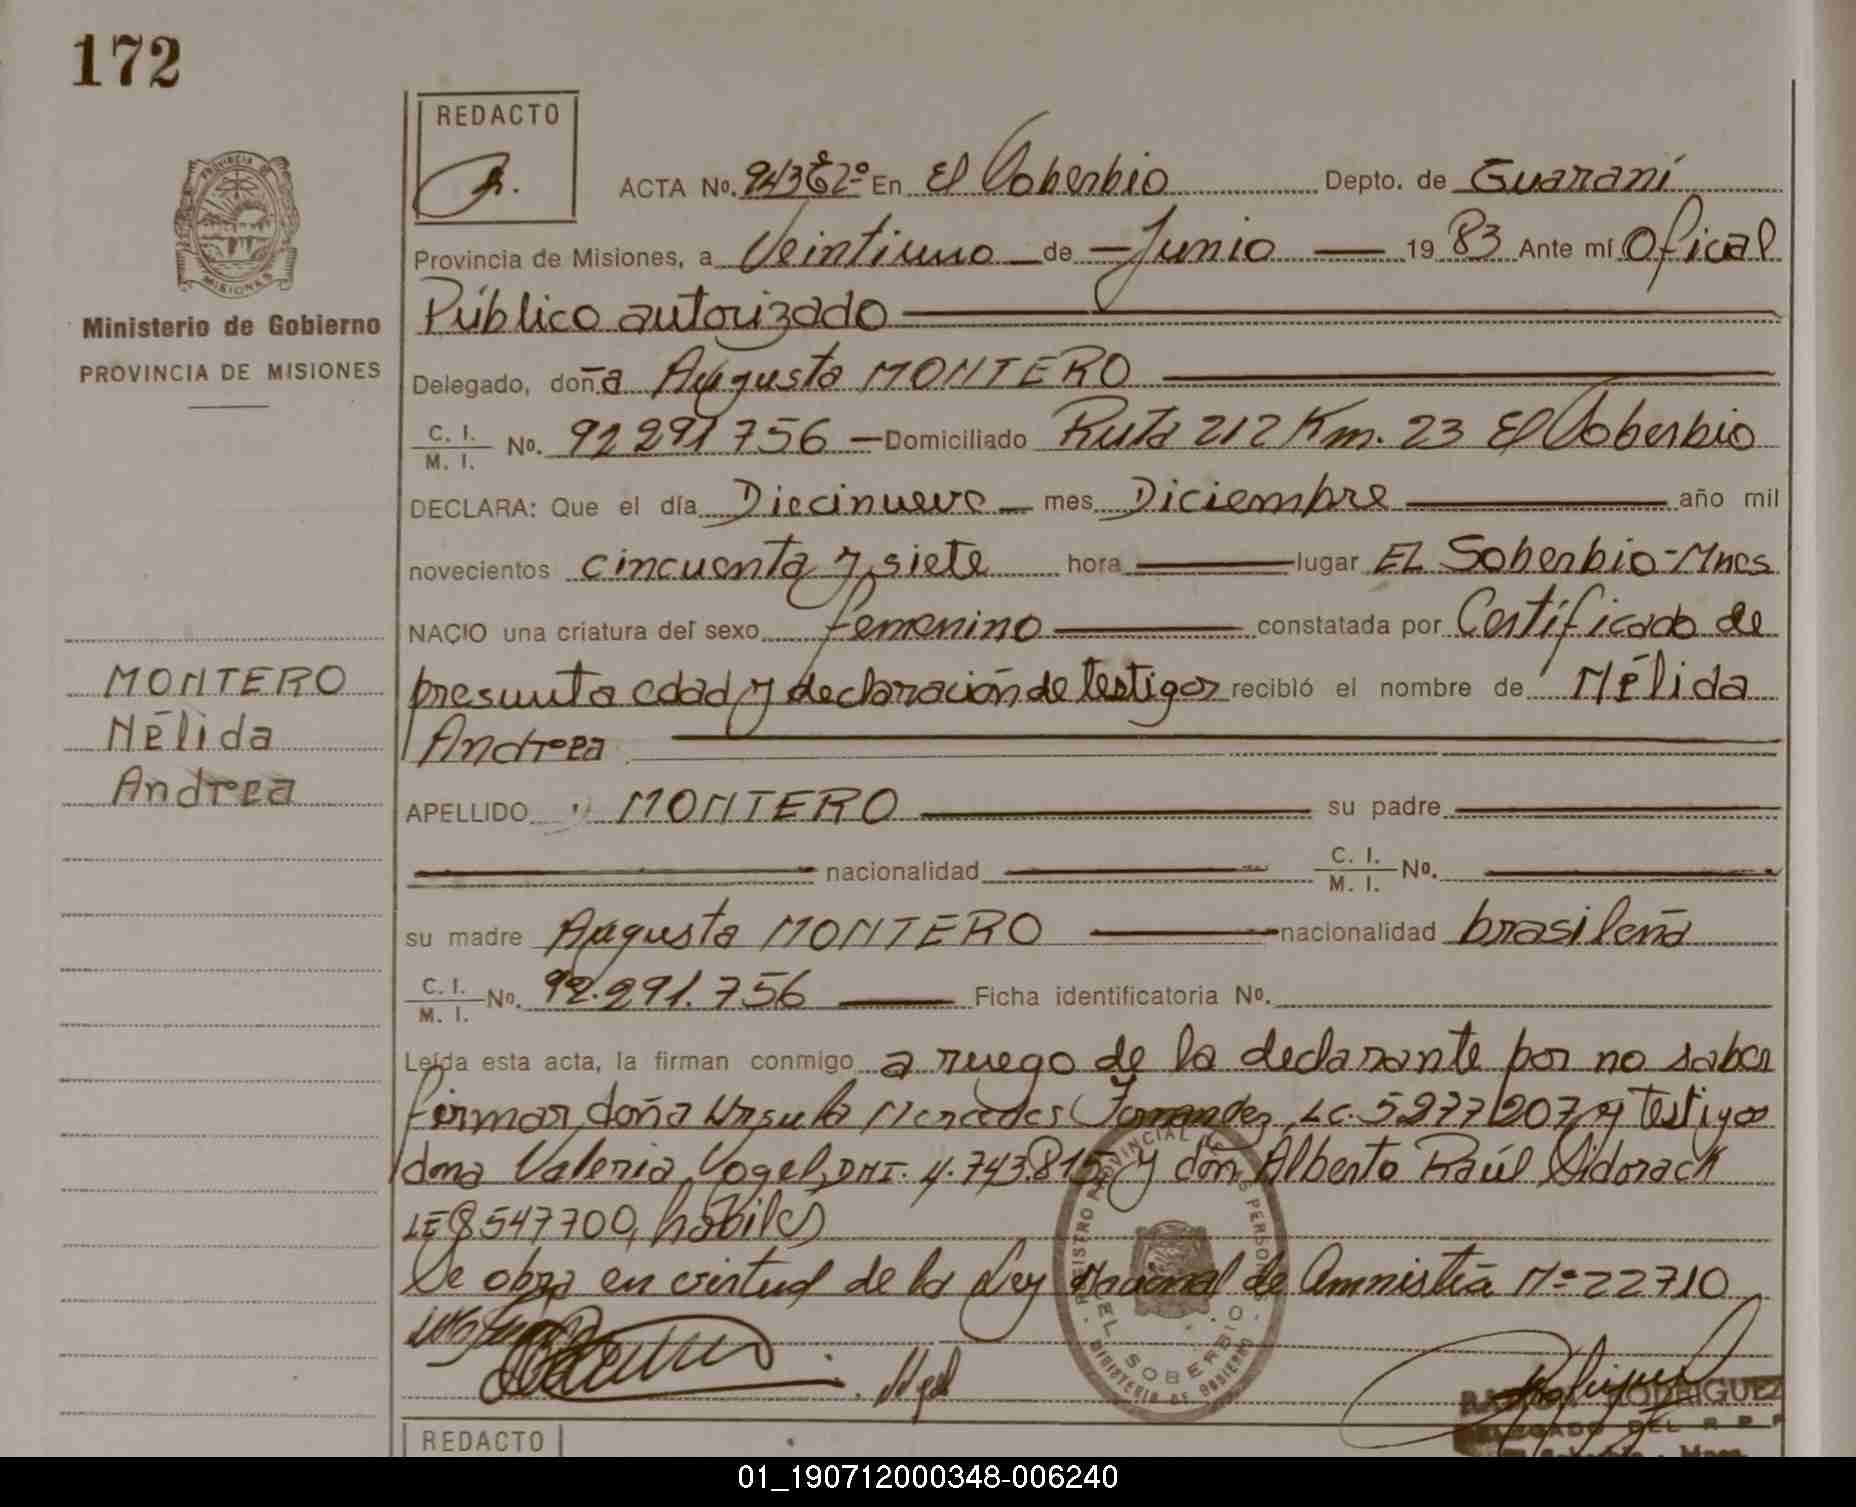 172
REDACTO
ACTA No. 943 Tº 2º En El Soberbio Depto. de Guaraní
Provincia de Misiones, a Veintiuno de Junio 1983 Ante mí Ofical
Público autorizado
Delegado, doña Augusta MONTERO
C. I. / M. I. No. 92 291 756 Domiciliado Ruta 212 Km. 23 El Soberbio
DECLARA: Que el día Diecinueve mes Diciembre año mil
novecientos cincuenta y siete hora lugar EL Soberbio-Mnes
NACIO una criatura del sexo femenino constatada por Certificado de
presunta edad y declaración de testigos recibió el nombre de Nélida
Andrea
APELLIDO MONTERO su padre
nacionalidad C. I. / M. I. No.
su madre Augusta MONTERO nacionalidad brasileña
C. I. / M. I. No. 92.291.756 Ficha identificatoria No.
Leída esta acta, la firman conmigo a ruego de la declarante por no saber
firmar, doña Ursula Mercedes Fernandez, LC. 5277207 y testigos
dona Valeria Vogel, DNI. 4.743.815 y don Alberto Raúl Sidorack
LE 8547700, hábiles
Se obra en virtud de la Ley Nacional de Amnistía Nº 22710
Ministerio de Gobierno
PROVINCIA DE MISIONES
MONTERO
Nélida
Andrea
PROVINCIA DE
MISIONES
REGISTRO PROVINCIAL DE LAS PERSONAS
EL SOBERBIO
MINISTERIO DE GOBIERNO
RODRIGUEZ
DELEGADO DEL R P P
REDACTO
01_190712000348-006240